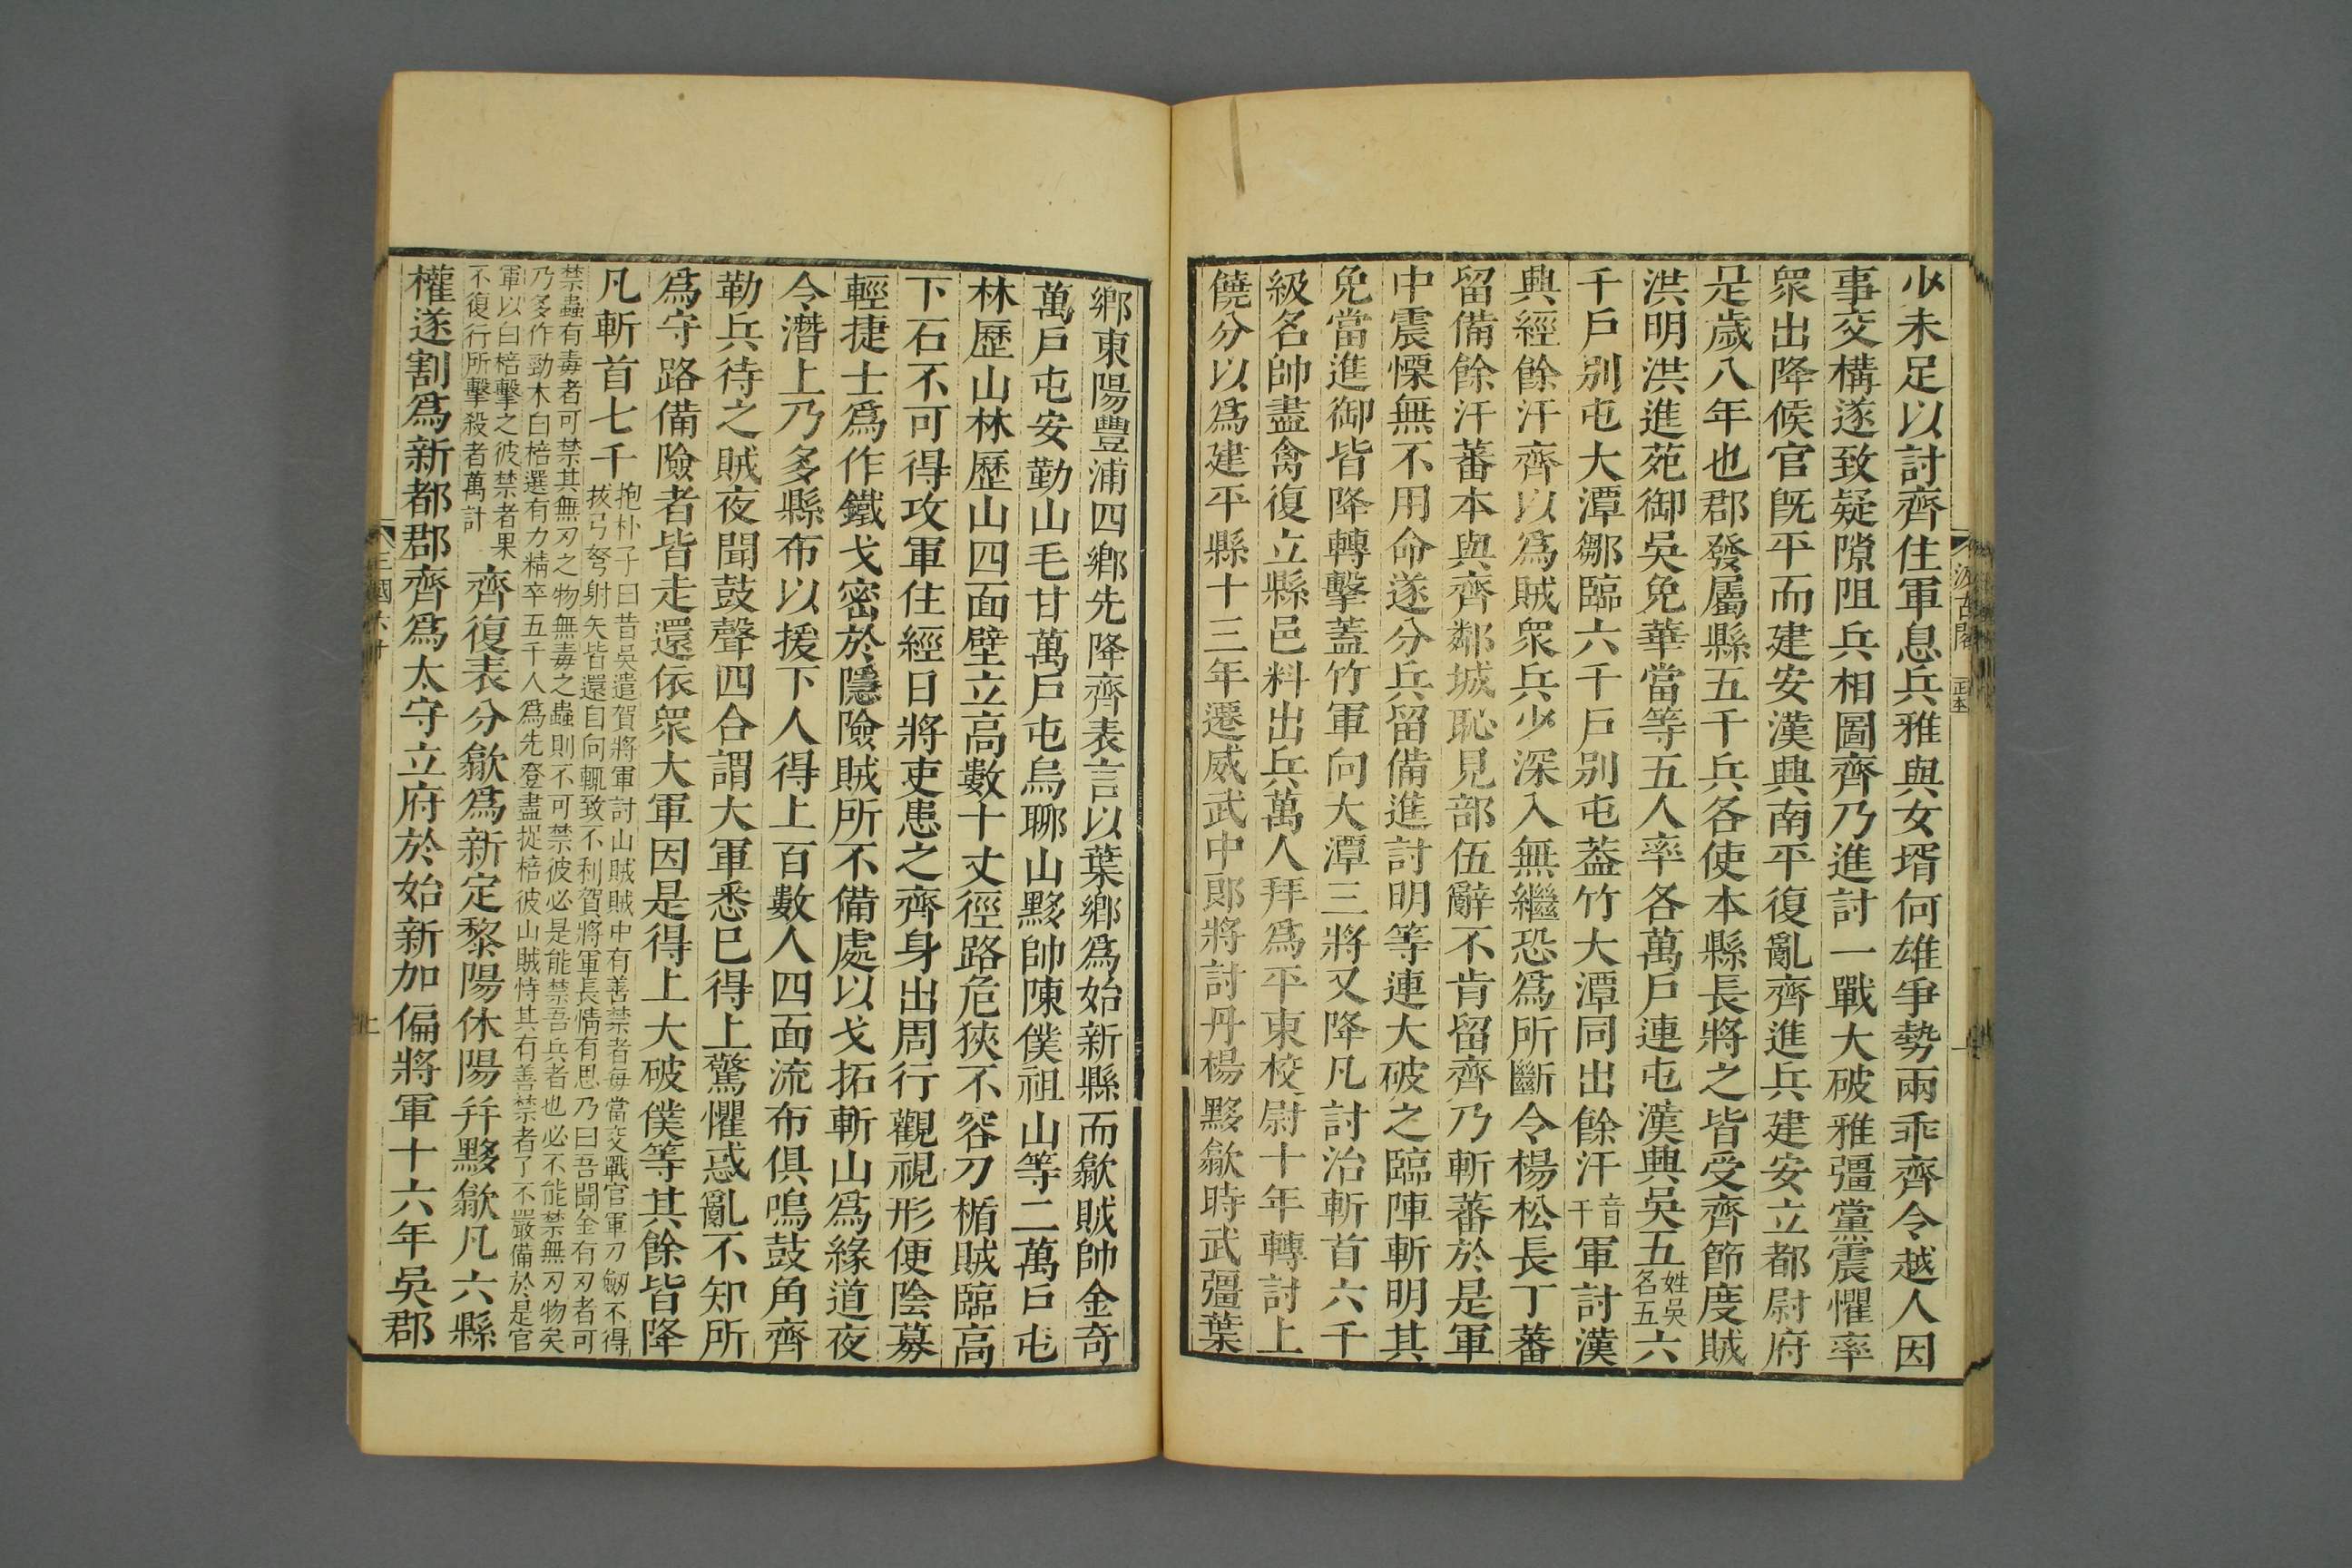 少未足以討齊住軍息兵雅與女壻何雄爭勢兩乖齊令越人因
事交構遂致疑隙阻兵相圖齊乃進討一戰大破雅彊黨震懼率
衆出降候官旣平而建安漢興南平復亂齊進兵建安立都尉府
是歲八年也郡發屬縣五千兵各使本縣長將之皆受齊節度賊
洪明洪進苑御吳免華當等五人率各萬戶連屯漢興吳五姓吳名五六
千戶別屯大潭鄒臨六千戶別屯葢竹大潭同出餘汗音干軍討漢
興經餘汗齊以爲賊衆兵少深入無繼恐爲所斷令楊松長丁蕃
留備餘汗蕃本與齊鄰城恥見部伍辭不肯留齊乃斬蕃於是軍
中震慄無不用命遂分兵留備進討明等連大破之臨陣斬明其
免當進御皆降轉擊蓋竹軍向大潭三將又降凡討治斬首六千
級名帥盡禽復立縣邑料出兵萬人拜爲平東校尉十年轉討上
饒分以爲建平縣十三年遷威武中郎將討丹楊黟歙時武彊葉
汲古閣
正本
鄉東陽豐浦四鄉先降齊表言以葉鄉爲始新縣而歙賊帥金奇
萬戶屯安勤山毛甘萬戶屯烏聊山黟帥陳僕祖山等二萬戶屯
林歷山林歷山四面壁立高數十丈徑路危狹不容刀楯賊臨高
下石不可得攻軍住經日將吏患之齊身出周行觀視形便陰募
輕捷士爲作鐵戈密於隱險賊所不備處以戈拓斬山爲緣道夜
令潛上乃多縣布以援下人得上百數人四面流布俱鳴鼓角齊
勒兵待之賊夜聞鼓聲四合謂大軍悉已得上驚懼惑亂不知所
爲守路備險者皆走還依衆大軍因是得上大破僕等其餘皆降
凡斬首七千
抱朴子曰昔吳遣賀將軍討山賊賊中有善禁者每當交戰官軍刀劒不得
拔弓弩射矢皆還自向輒致不利賀將軍長情有思乃曰吾聞金有刃者可
禁蟲有毒者可禁其無刃之物無毒之蟲則不可禁彼必是能禁吾兵者也必不能禁無刃物矣
乃多作勁木白棓選有力精卒五千人爲先登盡捉棓彼山賊恃其有善禁者了不嚴備於是官
軍以白棓擊之彼禁者果
不復行所擊殺者萬計
齊復表分歙爲新定黎陽休陽并黟歙凡六縣
權遂割爲新都郡齊爲太守立府於始新加偏將軍十六年吳郡
三國六十